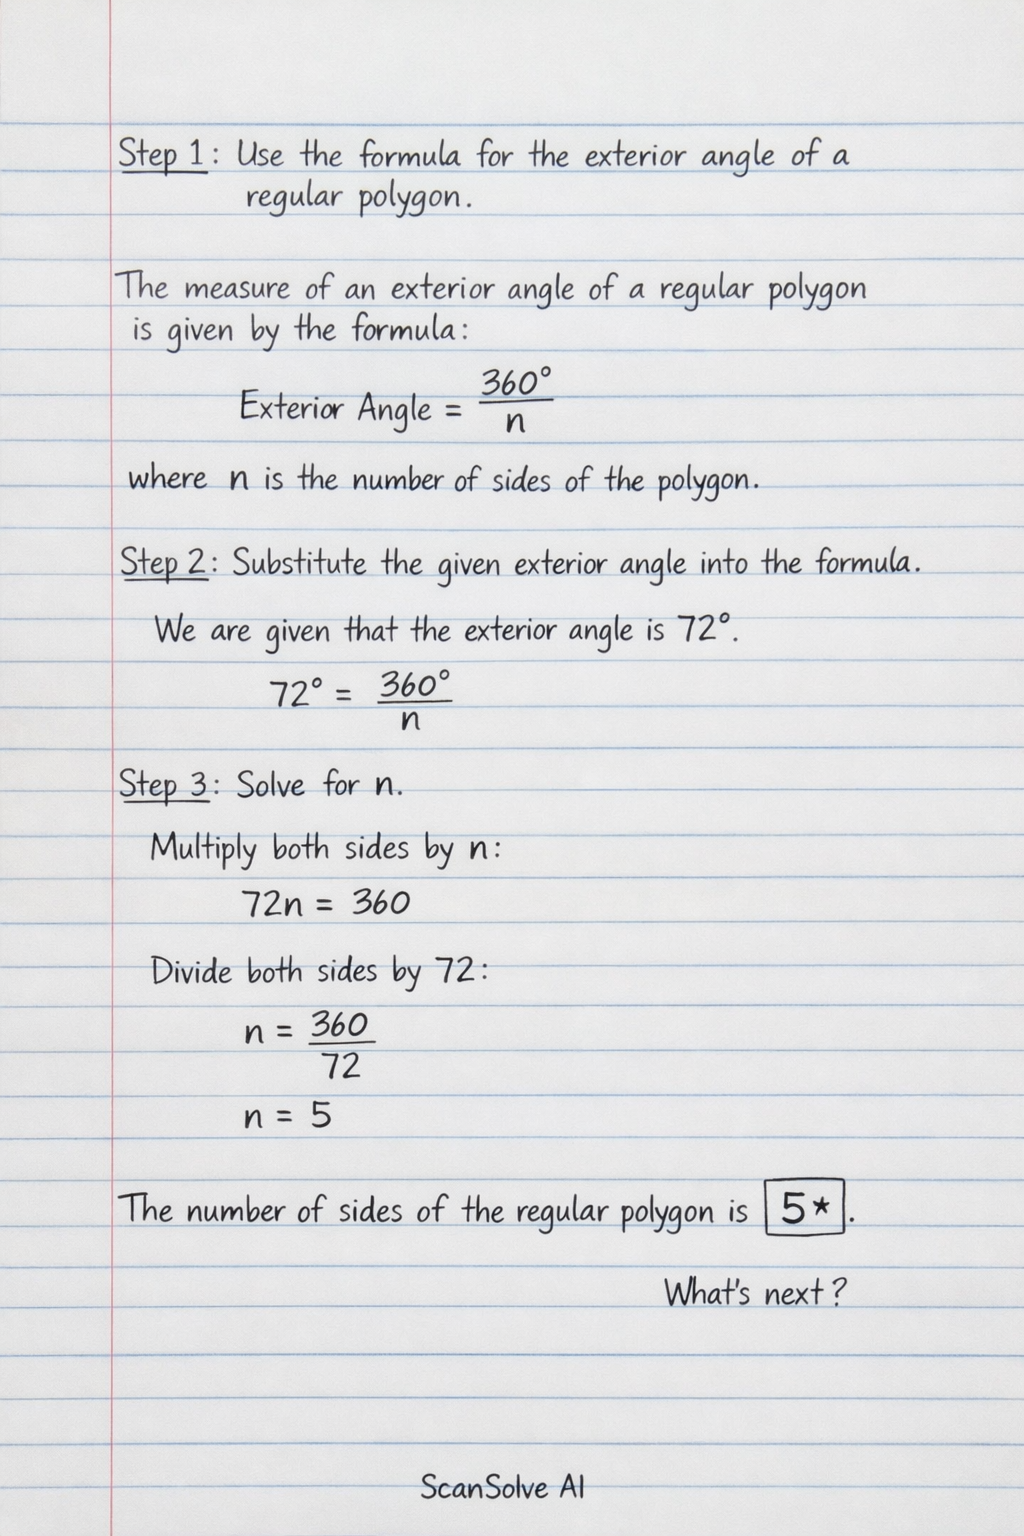 Step 1: Use the formula for the exterior angle of a
regular polygon.
The measure of an exterior angle of a regular polygon
is given by the formula:
Exterior Angle = 360°/n
where n is the number of sides of the polygon.
Step 2: Substitute the given exterior angle into the formula.
We are given that the exterior angle is 72°.
72° = 360°/n
Step 3: Solve for n.
Multiply both sides by n:
72n = 360
Divide both sides by 72:
n = 360/72
n = 5
The number of sides of the regular polygon is 5*.
What's next?
ScanSolve AI